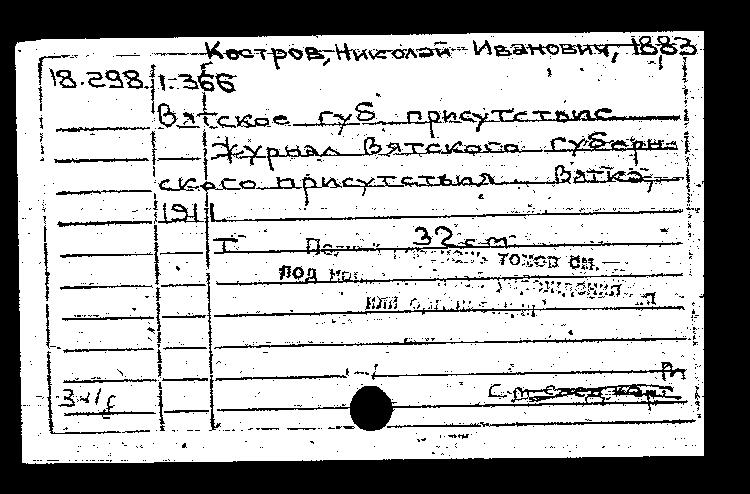 Костров, Николай Иванович, 1883
18.298.1.366
Вятское губ. присутствие
Журнал Вятского губерн-
ского присутствия. Вятка,
1911
Т 32 см
томов см.
под
учреждения
или
См. след. карт.